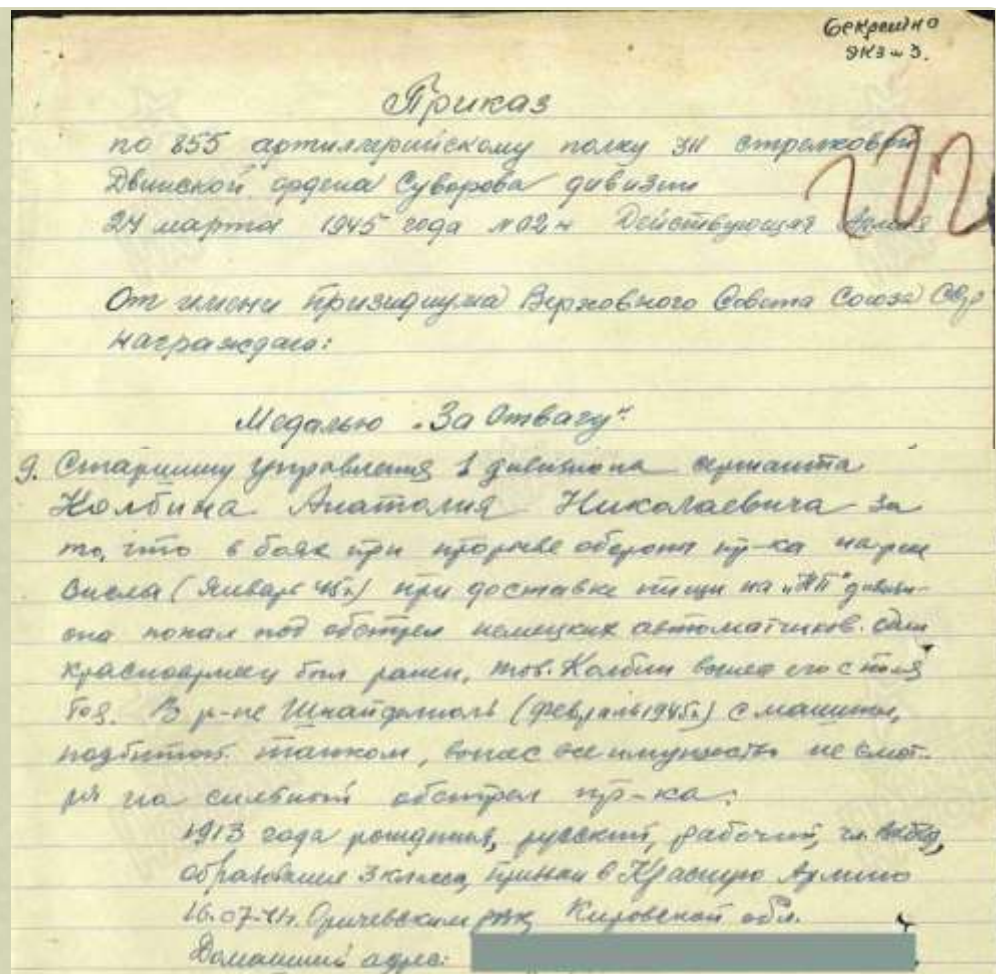 Секретно
экз № 3.
Приказ
по 855 артиллерийскому полку 311 стрелковой
Двинской ордена Суворова дивизии
24 марта 1945 года № 02н Действующая Армия
От имени Призидиума Верховного Совета Союза ССР
награждаю:
Медалью „За Отвагу“.
9. Старшину управления 1 дивизиона сержанта
Колбина Анатолия Николаевича за
то, что в боях при прорыве обороны пр-ка на реке
Висла (Январь 45г.) при доставке пищи на „НП“ дивизи-
она попал под обстрел немецких автоматчиков. Один
красноармеец был ранен, тов. Колбин вынес его с поля
боя. В р-не Шнайдемюль (февраль 1945г.) с машины,
подбитой танком, спас все имущество не смот-
ря на сильный обстрел пр-ка.
1913 года рождения, русский, рабочий, чл. ВКП(б),
образование 3 класса, призван в Красную Армию
16.07.41г. Оричевским РВК Кировской обл.
Домашний адрес: